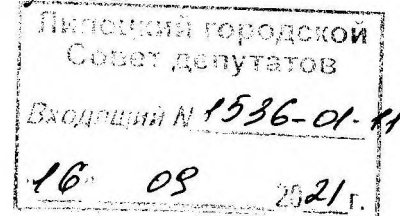 Липецкий городской
Совет депутатов
Входящий N 1536-01-11
"16" 09 2021 г.